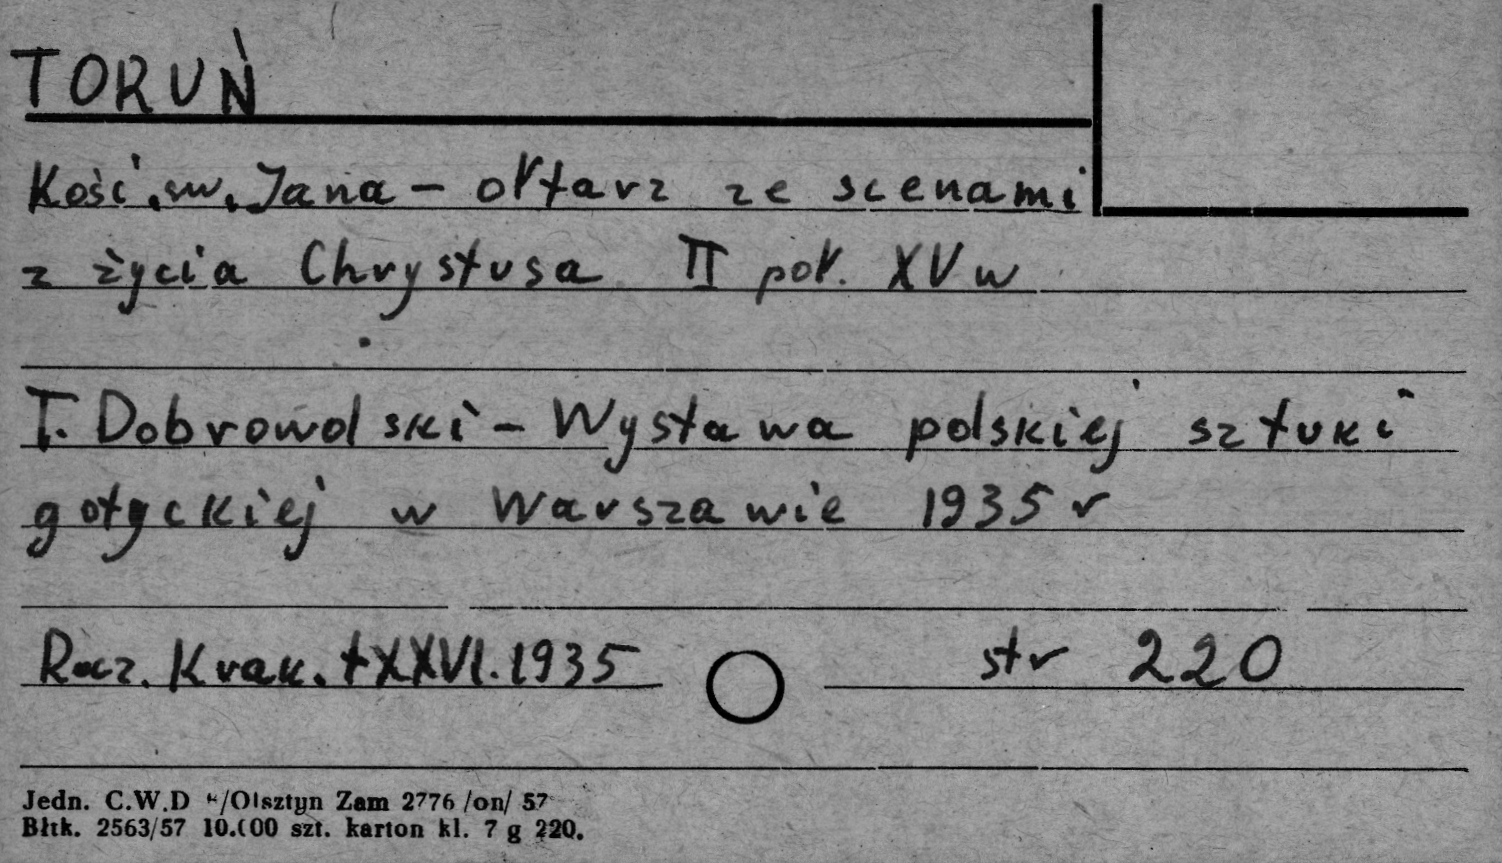 TORUŃ
Kość. św. Jana – ołtarz ze scenami
z życia Chrystusa II poł. XV w
T. Dobrowolski – Wystawa polskiej sztuki
gotyckiej w Warszawie 1935 r
Rocz. Krak. t XXVI. 1935 str 220
Jedn. C.W.D "/Olsztyn Zam 2776 /on/ 57
Błtk. 2563/57 10.000 szt. karton kl. 7 g 220.